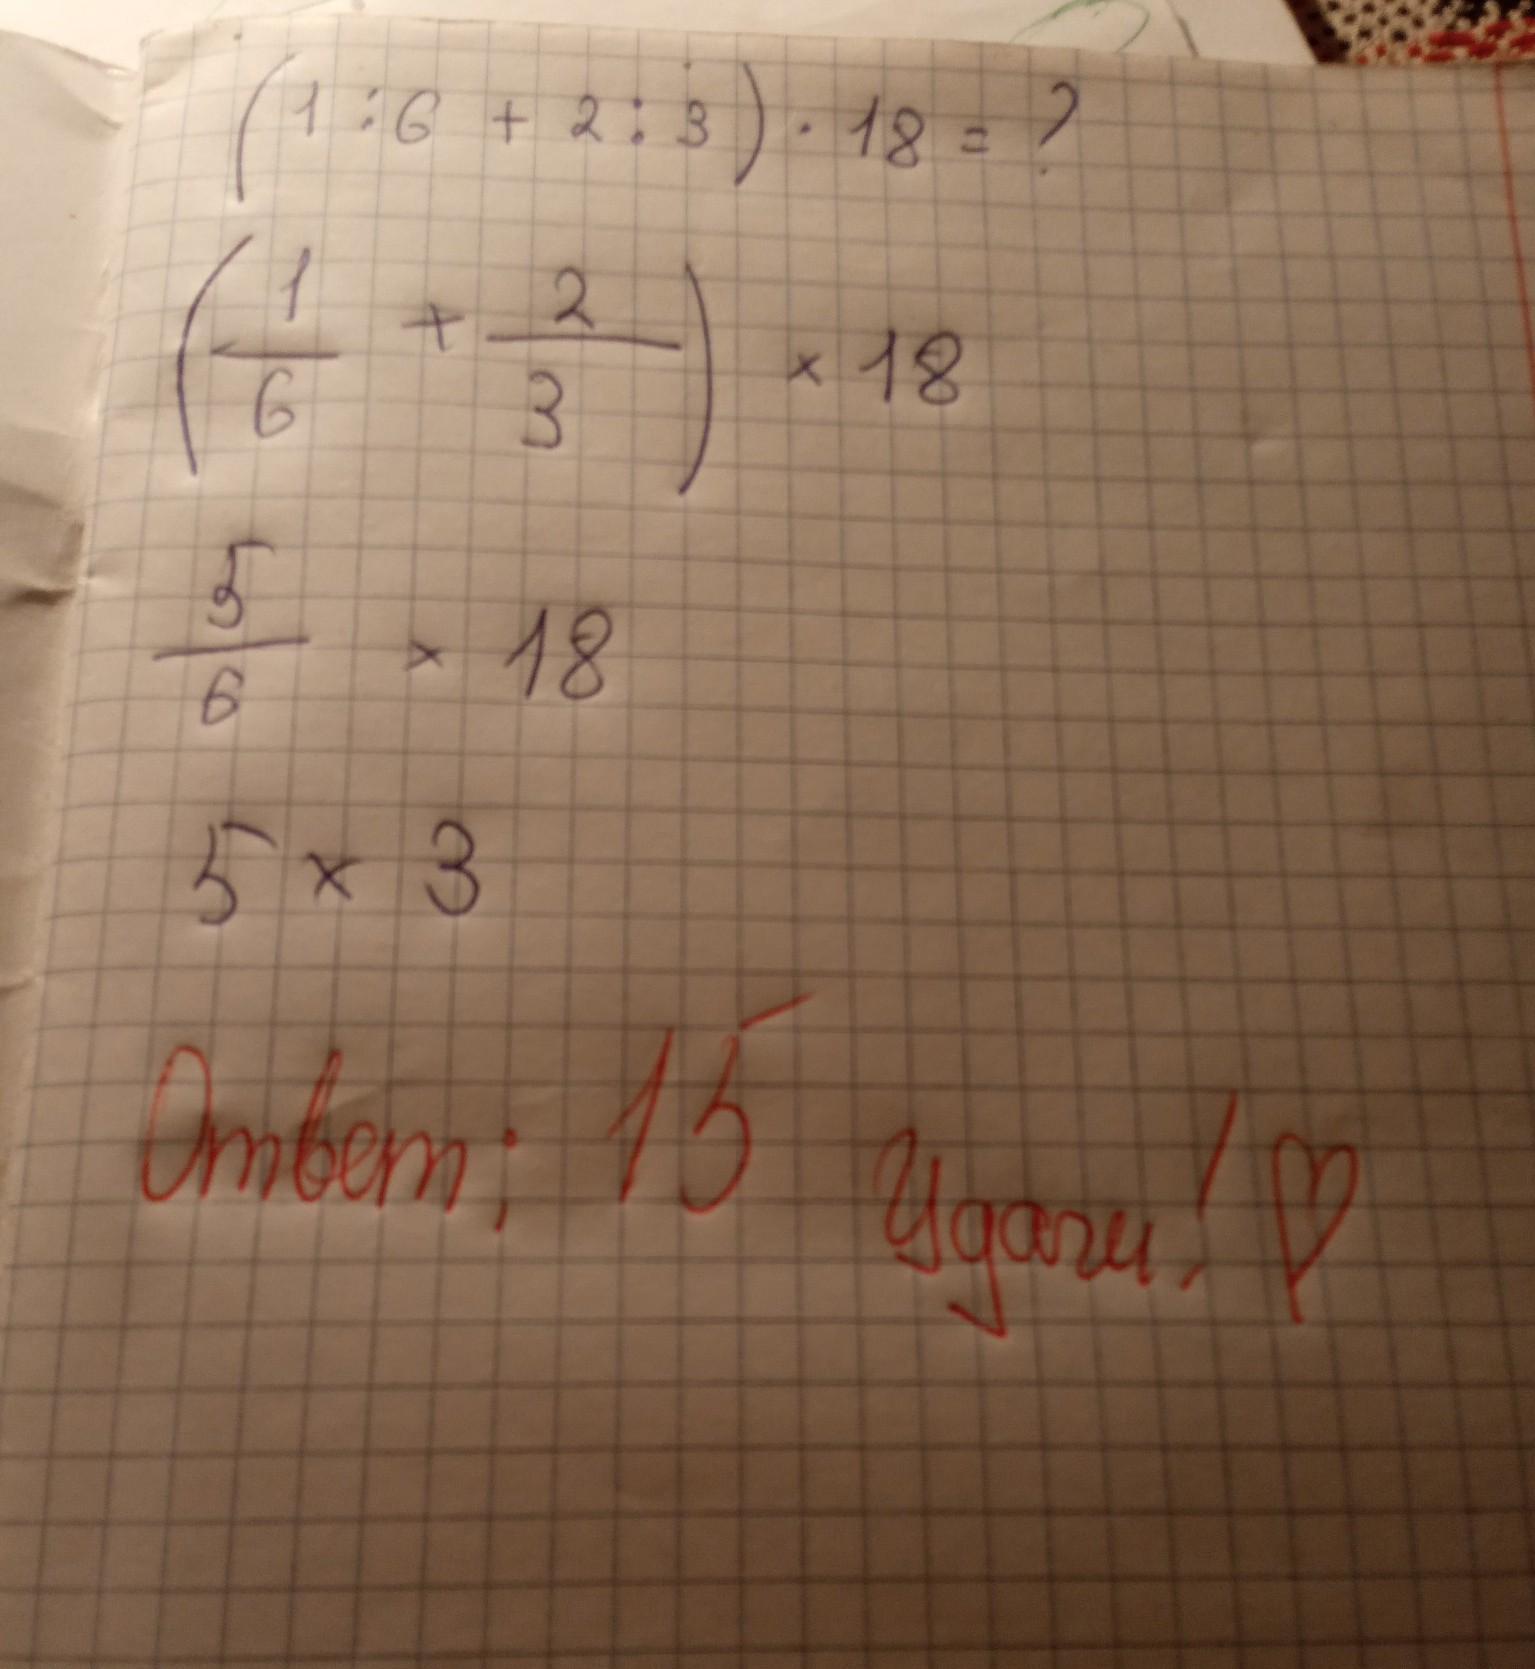 (1 : 6 + 2 : 3) · 18 = ?
(1/6 + 2/3) × 18
5/6 × 18
5 × 3
Ответ: 15 Удачи! ♡